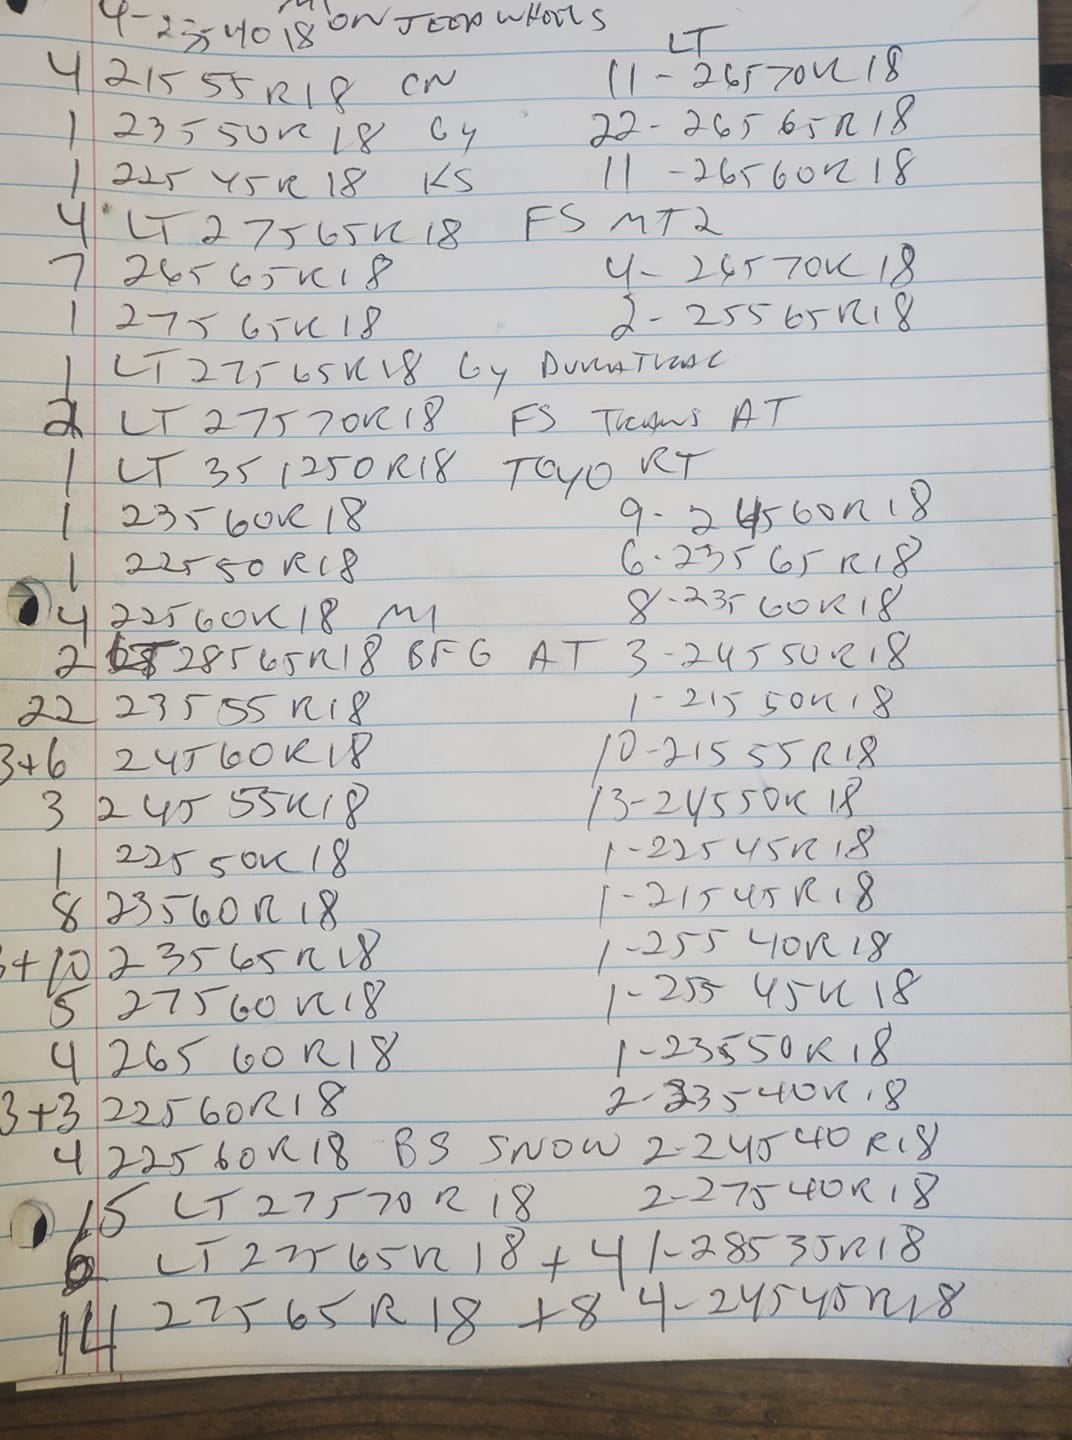 4-2354018 ON JEEP WHEELS
4 215 55R18 CN LT 11-26570R18
1 23550R18 Gy 22-26565R18
1 225 45R18 KS 11-26560R18
4 LT 27565R18 FS MT2
7 26565R18 4-26570R18
1 27565R18 2-25565R18
1 LT 27565R18 Gy DURATRAC
2 LT 27570R18 FS TRANS AT
1 LT 35 1250R18 TOYO RT
1 23560R18 9-24560R18
1 22550R18 6-23565R18
4 22560R18 M1 8-23560R18
2 LT 28565R18 BFG AT 3-24550R18
22 23555R18 1-21550R18
3+6 24560R18 10-21555R18
3 245 55R18 13-24550R18
1 22550R18 1-22545R18
8 23560R18 1-21545R18
3+10 23565R18 1-255 40R18
5 27560R18 1-255 45R18
4 265 60R18 1-23550R18
3+3 22560R18 2-23540R18
4 22560R18 BS SNOW 2-24540R18
15 LT 27570R18 2-27540R18
6 LT 27565R18 +4 1-28535R18
14 27565R18 +8 4-24545R18